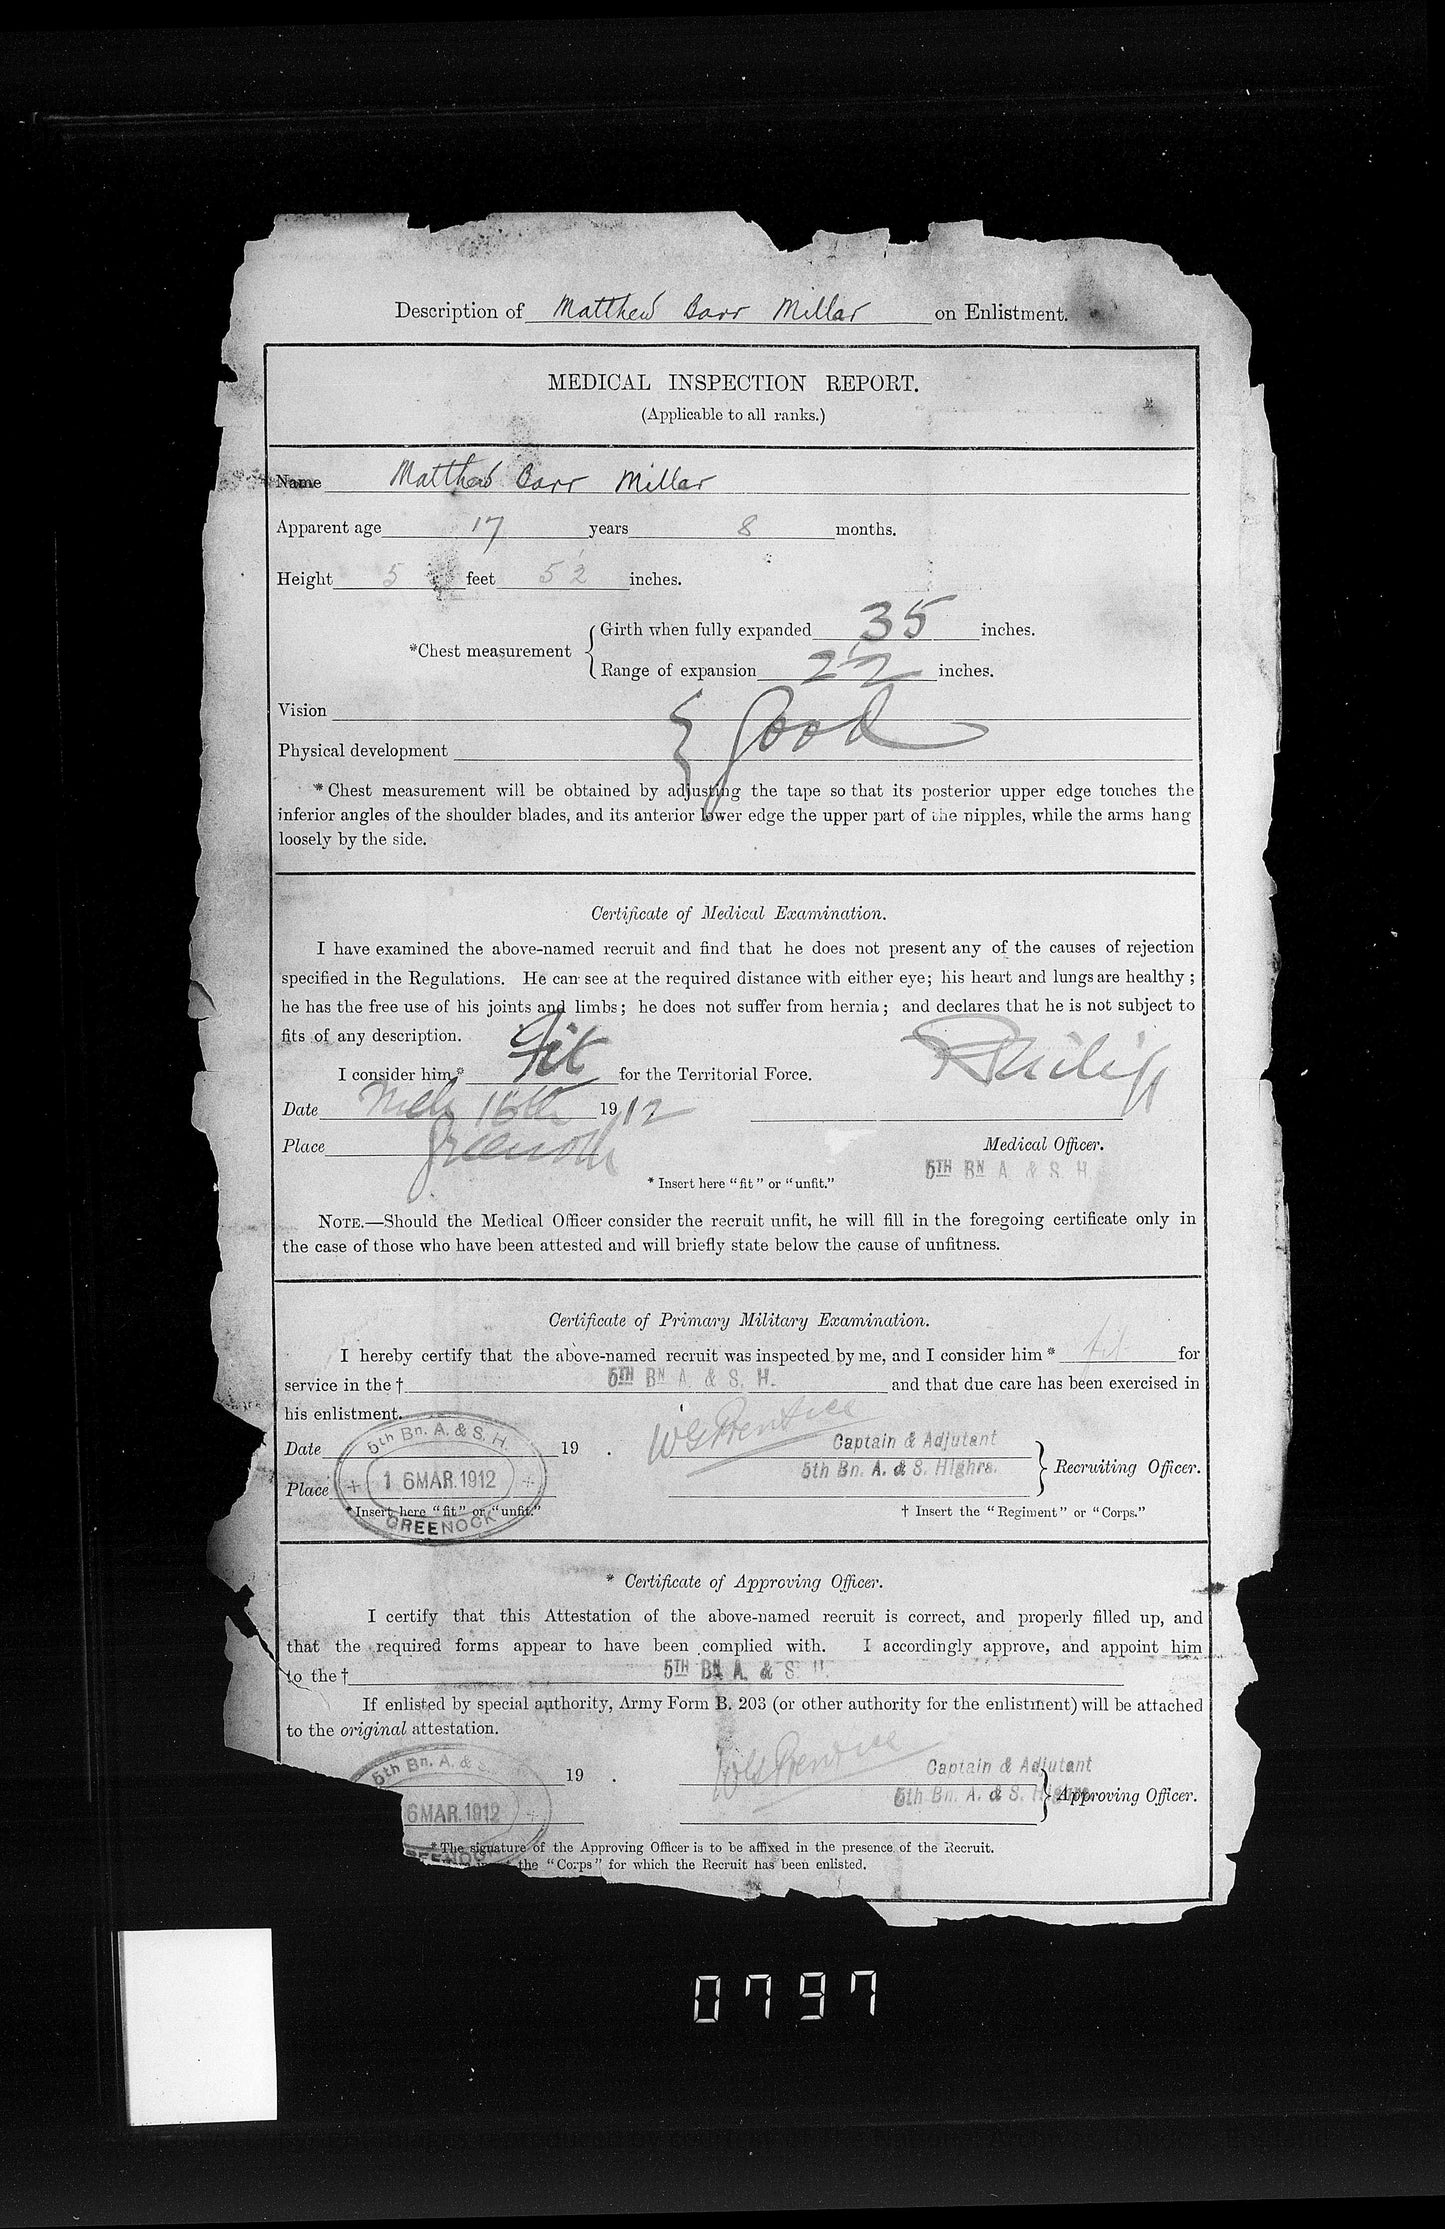 Description of Matthew Barr Millar on Enlistment.
MEDICAL INSPECTION REPORT.
(Applicable to all ranks.)
Name Matthew Barr Millar
Apparent age 17 years 8 months.
Height 5 feet 5½ inches.
Girth when fully expanded 35 inches.
*Chest measurement
Range of expansion 2½ inches.
Vision
Good
Physical development
* Chest measurement will be obtained by adjusting the tape so that its posterior upper edge touches the
inferior angles of the shoulder blades, and its anterior lower edge the upper part of the nipples, while the arms hang
loosely by the side.
Certificate of Medical Examination.
I have examined the above-named recruit and find that he does not present any of the causes of rejection
specified in the Regulations. He can see at the required distance with either eye; his heart and lungs are healthy;
he has the free use of his joints and limbs; he does not suffer from hernia; and declares that he is not subject to
fits of any description.
I consider him* Fit for the Territorial Force.
Date Mch 16th 1912
Place Greenock
Medical Officer.
5TH BN A. & S. H.
* Insert here "fit" or "unfit."
NOTE.—Should the Medical Officer consider the recruit unfit, he will fill in the foregoing certificate only in
the case of those who have been attested and will briefly state below the cause of unfitness.
Certificate of Primary Military Examination.
I hereby certify that the above-named recruit was inspected by me, and I consider him * fit for
service in the † 5TH BN A. & S. H. and that due care has been exercised in
his enlistment.
5th Bn. A. & S. H.
WG Prentice
Date 19 .
Captain & Adjutant
16 MAR. 1912
5th Bn. A. & S. Highrs.
Recruiting Officer.
Place
* Insert here "fit" or "unfit."
† Insert the "Regiment" or "Corps."
GREENOCK
* Certificate of Approving Officer.
I certify that this Attestation of the above-named recruit is correct, and properly filled up, and
that the required forms appear to have been complied with. I accordingly approve, and appoint him
to the † 5TH BN A. & S. H.
If enlisted by special authority, Army Form B. 203 (or other authority for the enlistment) will be attached
to the original attestation.
5th Bn. A. &
WG Prentice
19 .
Captain & Adjutant
5th Bn. A. & S. Highrs.
Approving Officer.
6 MAR. 1912
* The signature of the Approving Officer is to be affixed in the presence of the Recruit.
the "Corps" for which the Recruit has been enlisted.
0797